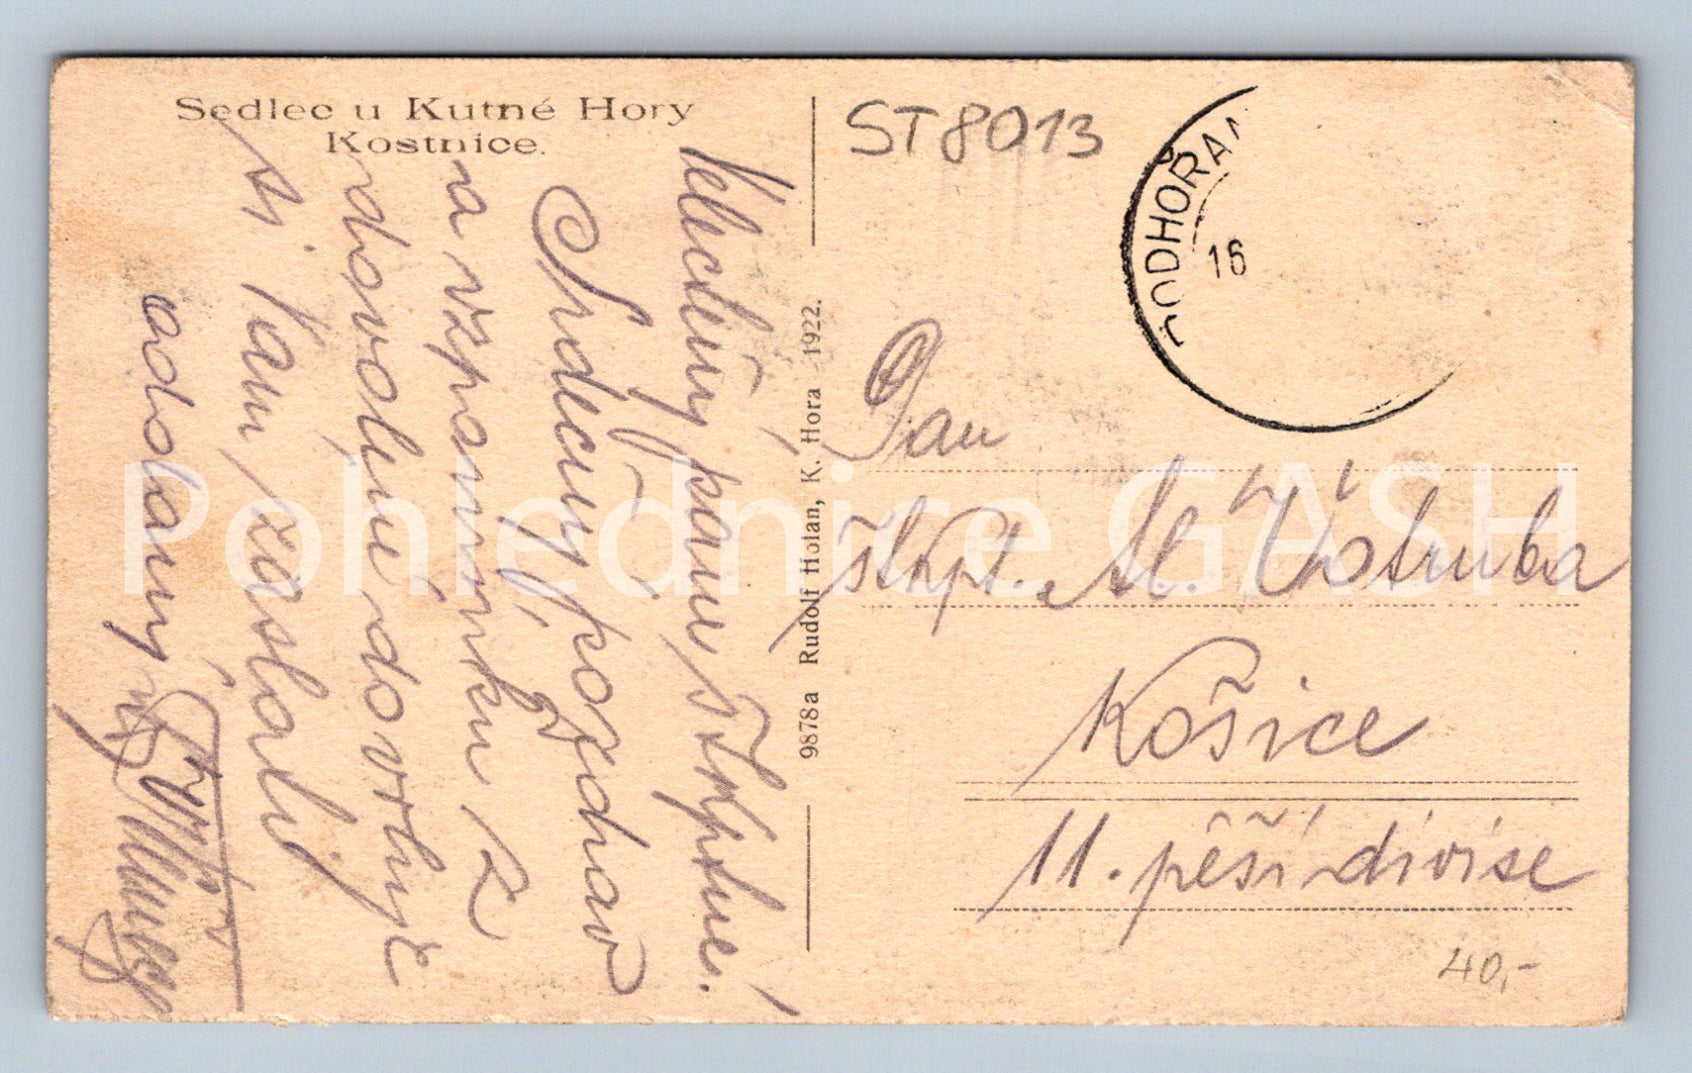 Sedlec u Kutné Hory
Kostnice.
Velectěný pane štkptne.!
Srdečný pozdrav
a vzpomínku z
dovoluje
si Vám zaslati
oddaný
9878a Rudolf Holan, K. Hora 1922.
ST8013
PODHOŘAN
16
Pan
štkpt. M. Votruba
Košice
11. pěší divise
40,-
Pohlednice GASH